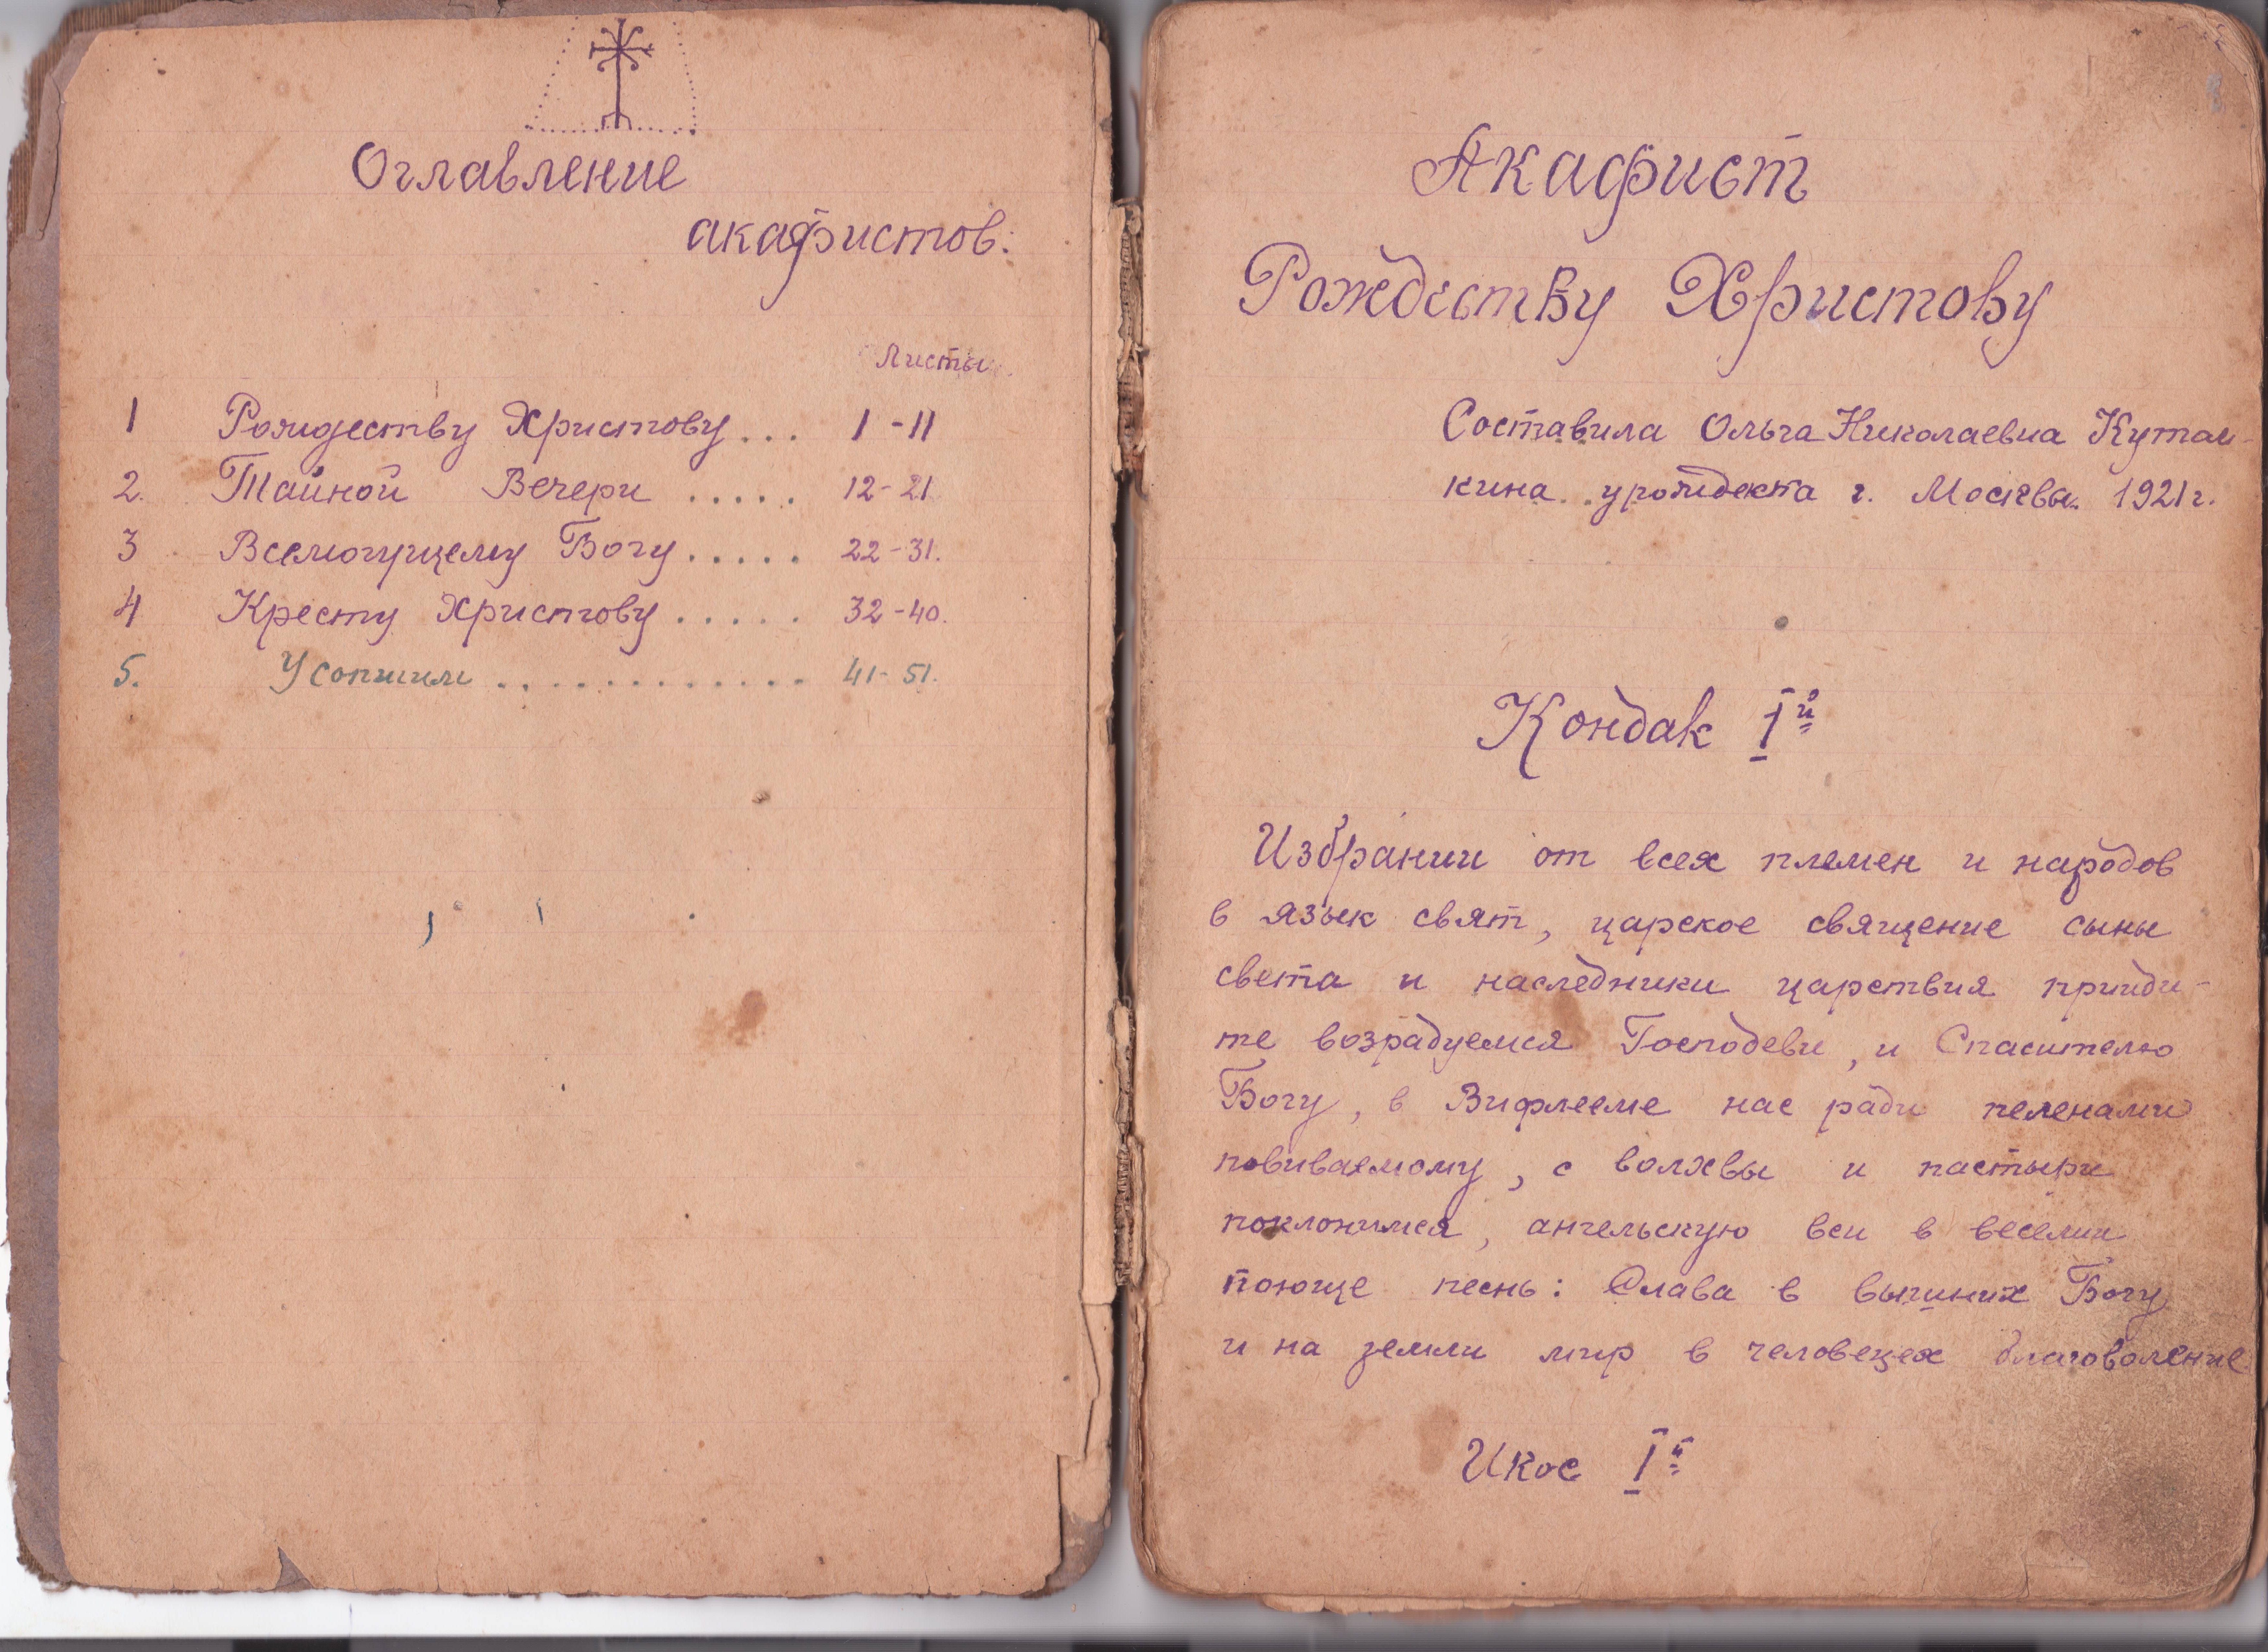 Оглавление
акафистов:
Листы
1 Рождеству Христову... 1-11
2. Тайной Вечери ..... 12-21
3 Всемогущему Богу..... 22-31.
4 Кресту Христову ..... 32-40.
5. Усопшим ............ 41-51.
Акафист
Рождеству Христову
Составила Ольга Николаевна Кутом-
кина урожденка г. Москвы. 1921 г.
Кондак I й
Избрании от всех племен и народов
в язык свят, царское священие сыны
света и наследники царствия прииди-
те возрадуемся Господеви, и Спасителю
Богу, в Вифлееме нас ради пеленами
повиваемому, с волхвы и пастыри
поклонимся, ангельскую вси в веселии
поюще песнь: Слава в вышних Богу
и на земли мир в человецех благоволение
Икос I й